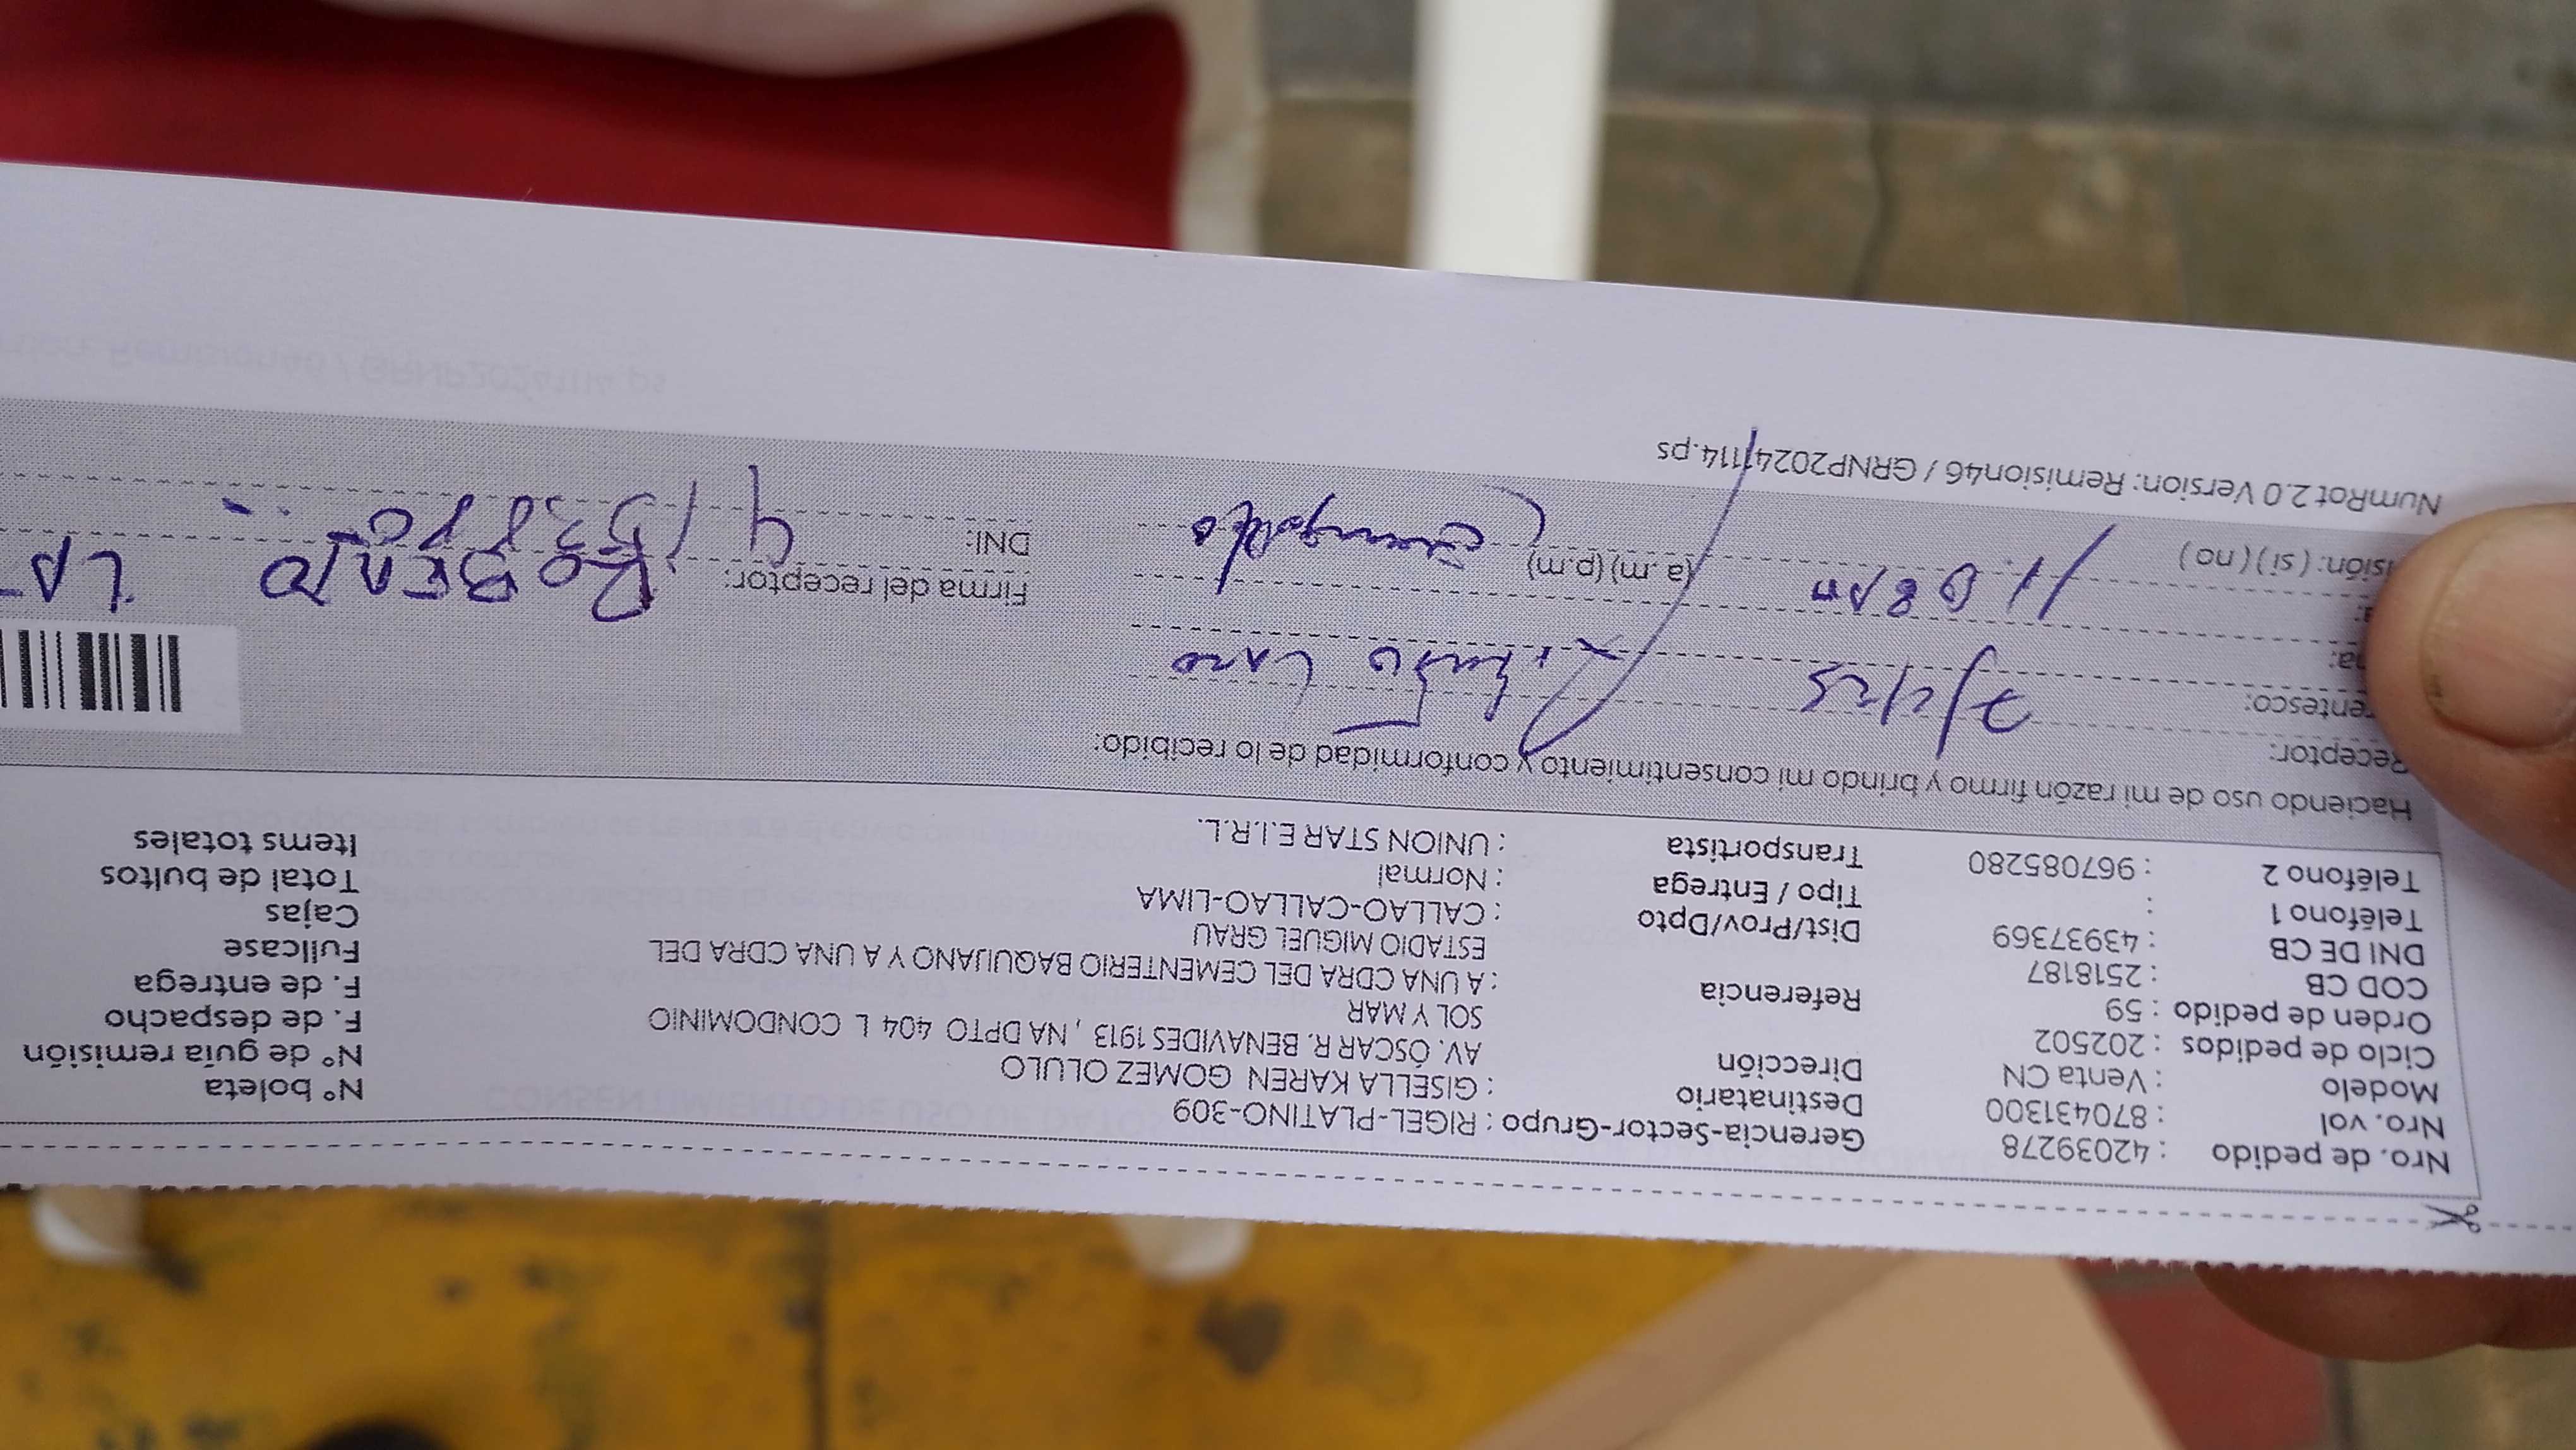 Nro. de pedido : 42039278 Gerencia-Sector-Grupo : RIGEL-PLATINO-309 N° boleta
Nro. vol : 870431300 Destinatario : GISELLA KAREN GOMEZ OLULO N° de guía remisión
Modelo : Venta CN Dirección AV. ÓSCAR R. BENAVIDES 1913 , NA DPTO 404 L CONDOMINIO F. de despacho
Ciclo de pedidos : 202502 SOL Y MAR F. de entrega
Orden de pedido : 59 Referencia : A UNA CDRA DEL CEMENTERIO BAQUIJANO Y A UNA CDRA DEL Fullcase
COD CB : 2518187 ESTADIO MIGUEL GRAU Cajas
DNI DE CB : 43937369 Dist/Prov/Dpto : CALLAO-CALLAO-LIMA Total de bultos
Teléfono 1 : Tipo / Entrega : Normal Items totales
Teléfono 2 : 967085280 Transportista : UNION STAR E.I.R.L.
Haciendo uso de mi razón firmo y brindo mi consentimiento y conformidad de lo recibido:
Receptor:
rentesco:
na:
a: (a.m) (p.m) Firma del receptor:
isión: ( si ) ( no ) DNI:
NumRot 2.0 Version: Remision46 / GRNP20241114.ps